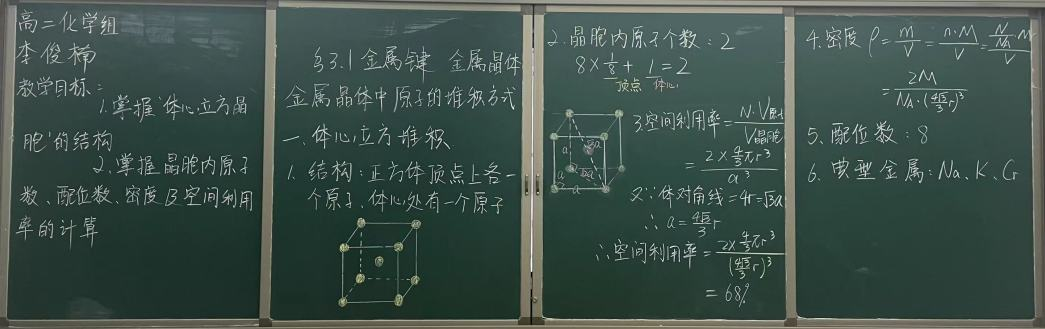 高二化学组
李俊梯
教学目标:
1.掌握'体心立方晶
胞'的结构
2.掌握晶胞内原子
数、配位数、密度及空间利用
率的计算
§3.1 金属键 金属晶体
金属晶体中原子的堆积方式
一.体心立方堆积
1.结构:正方体顶点上各一
个原子、体心处有一个原子
2.晶胞内原子个数:2
8×1/8+1=2
顶点 体心
a a
a √2a
a
3.空间利用率=N·V原子/V晶胞
=2×4/3πr³/a³
又∵体对角线=4r=√3a
∴a=4√3/3 r
∴空间利用率=2×4/3πr³/(4√3/3 r)³
=68%
4.密度 ρ=m/V=n·M/V=N/NA·M/V
=2M/NA·(4√3/3 r)³
5.配位数:8
6.典型金属:Na、K、Cr